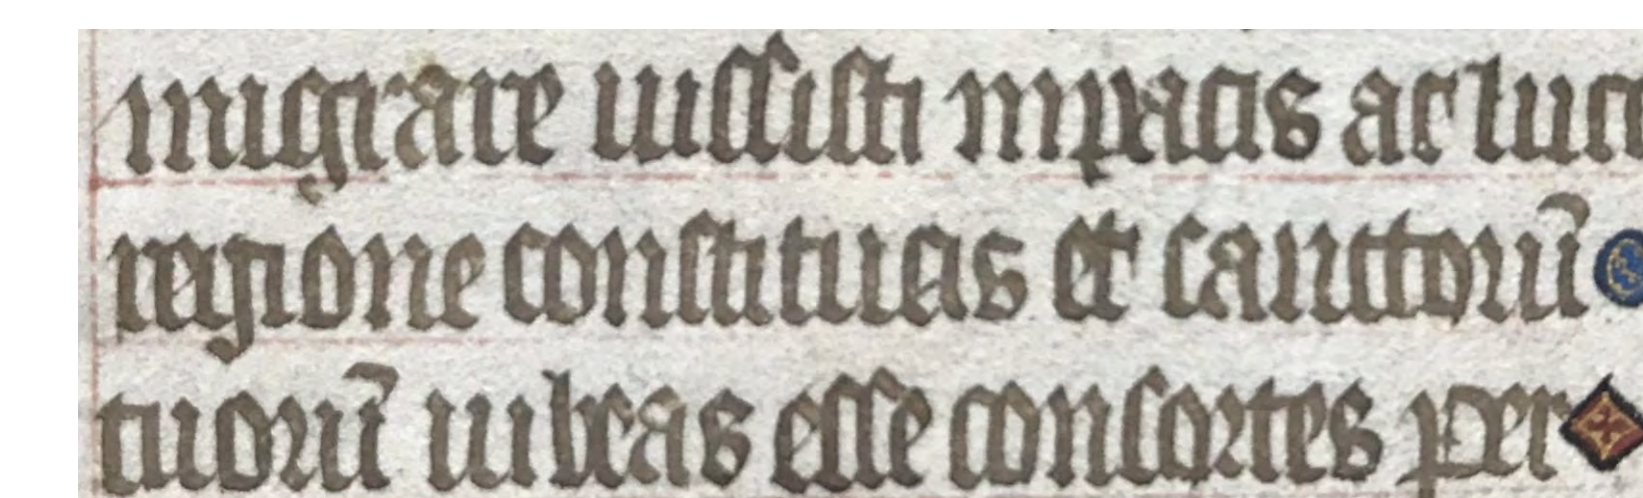 migrare iussisti in pacis ac luci
regione constituas et sanctorū
tuorū iubeas esse consortes per